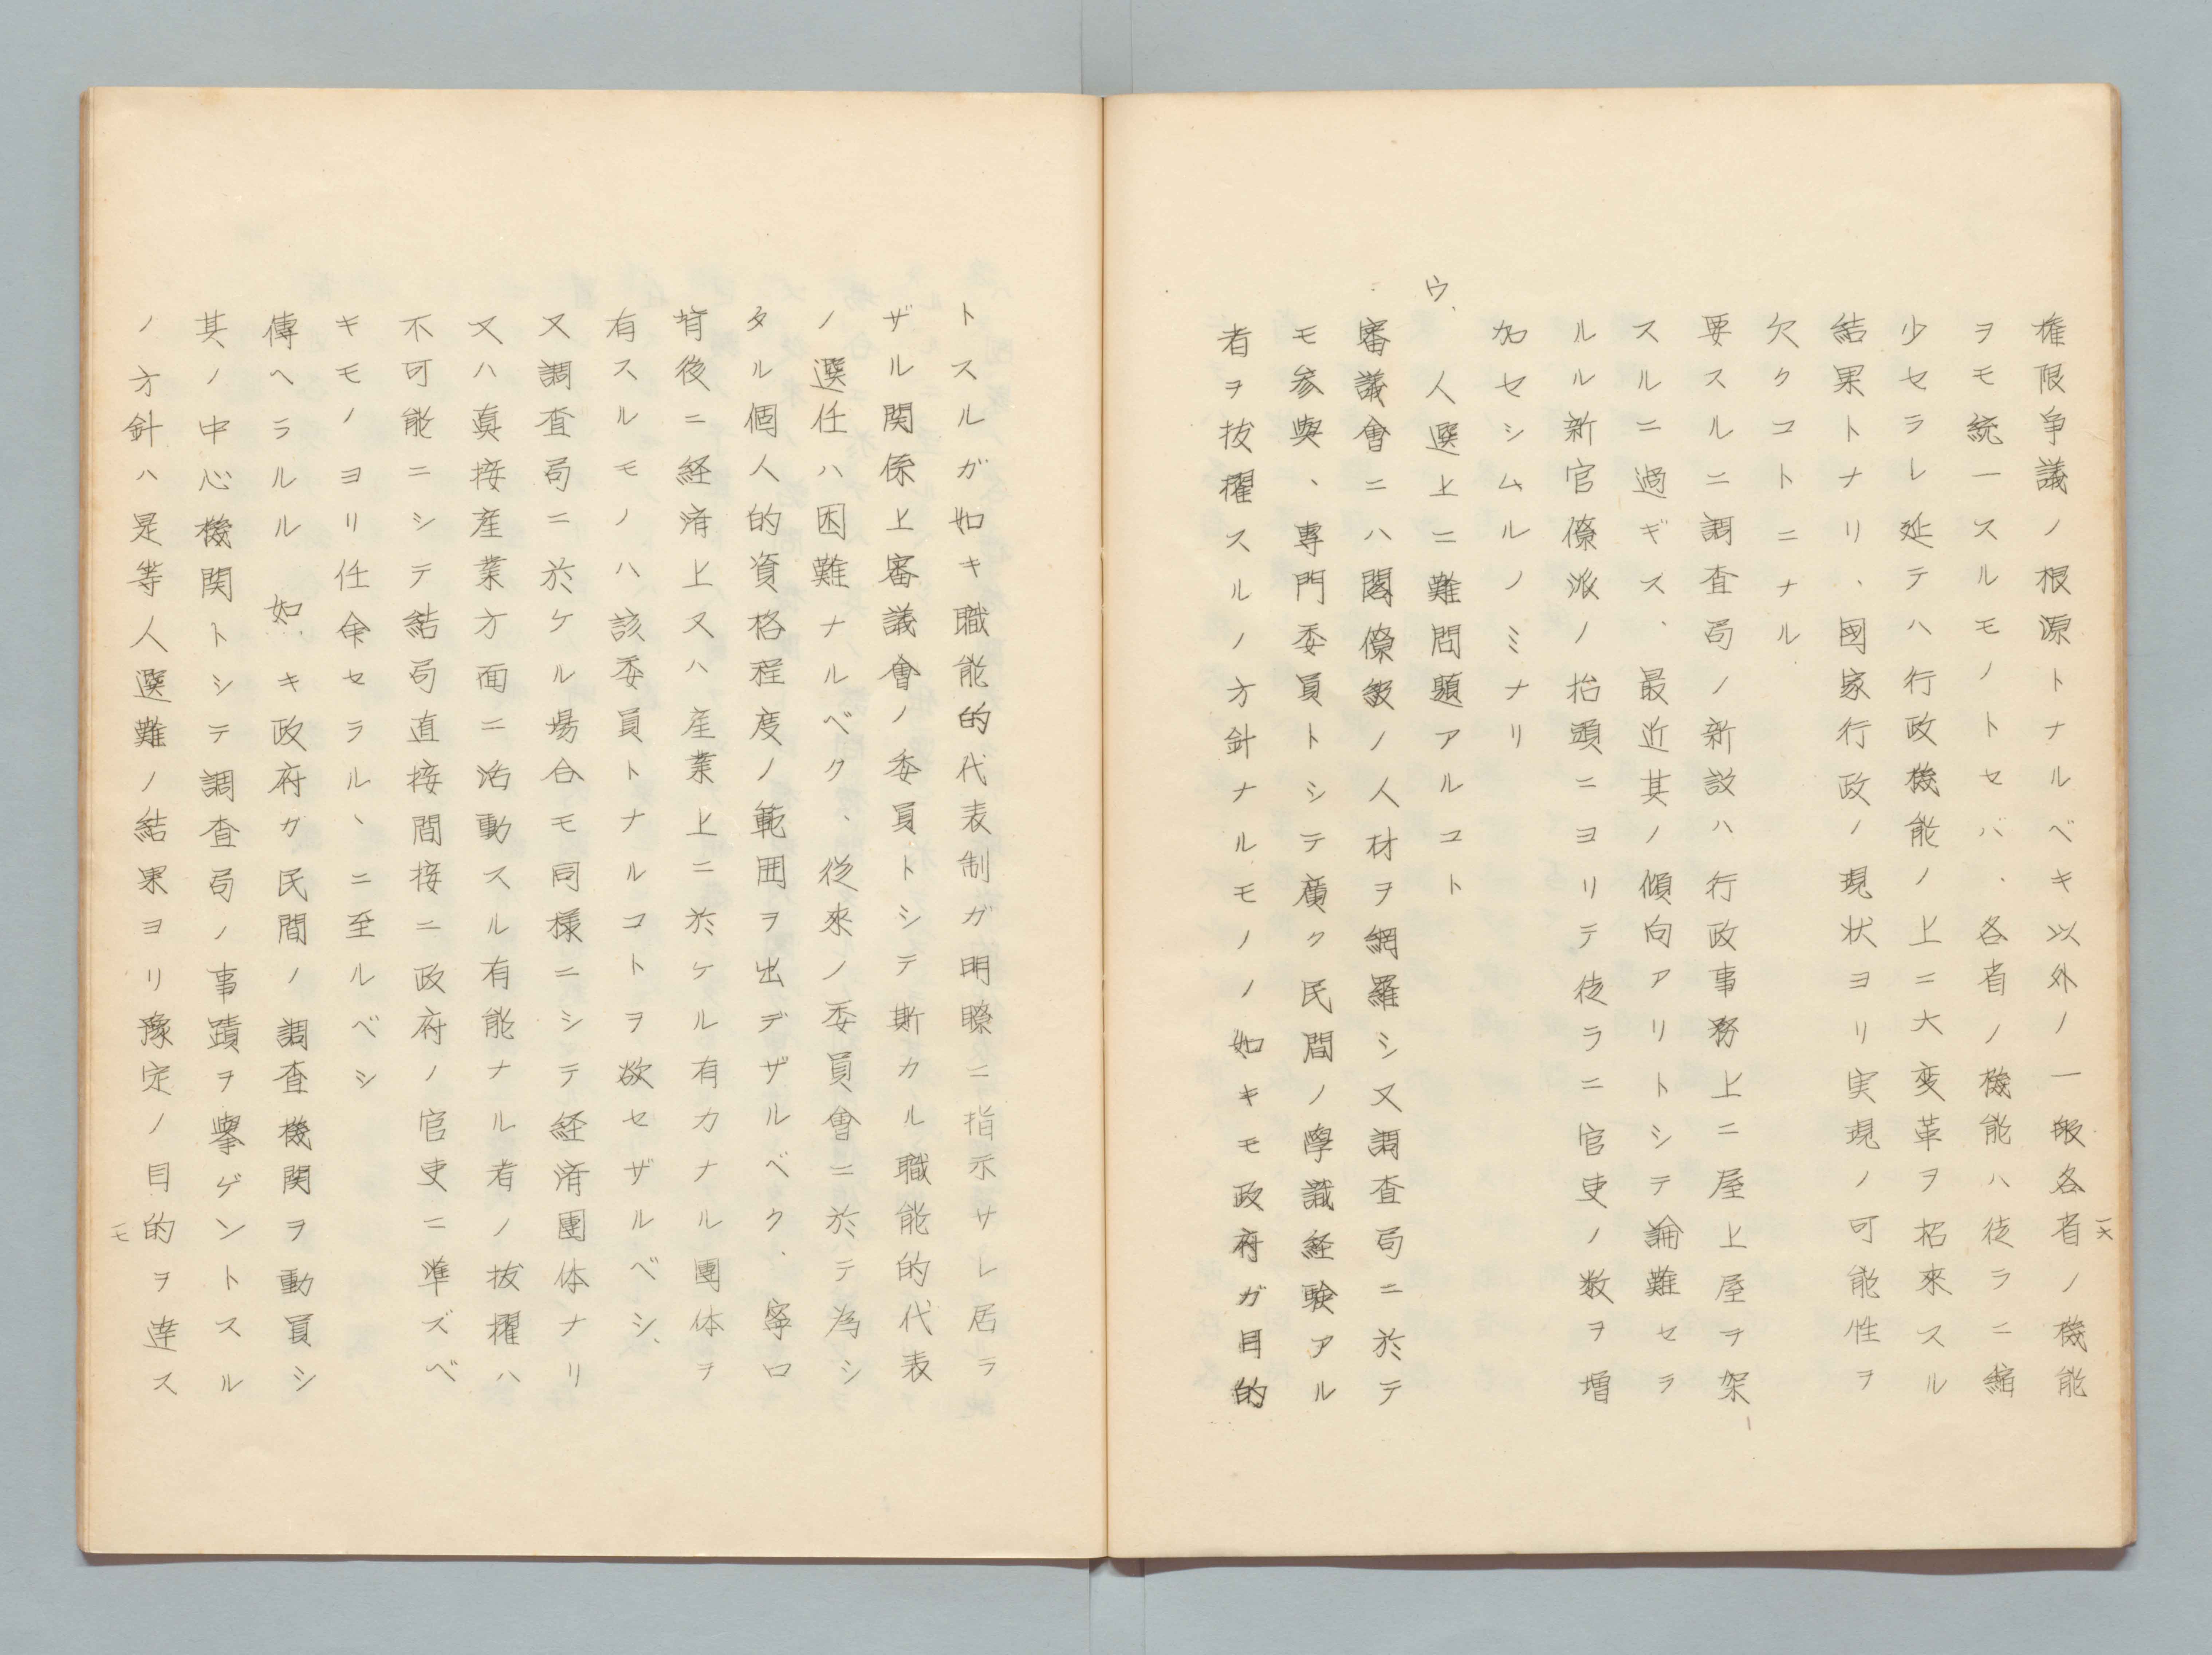 権限争議ノ根源トナルベキ以外ノ一般各省ノ機能
ヲモ統一スルモノトセバ、各省ノ機能ハ徒ラニ縮
少セラレ延テハ行政機能ノ上ニ大変革ヲ招來スル
結果トナリ、國家行政ノ現状ヨリ実現ノ可能性ヲ
欠クコトニナル
要スルニ調査局ノ新設ハ行政事務上ニ屋上屋ヲ架
スルニ過ギズ、最近其ノ傾向アリトシテ論難セラ
ルル新官僚派ノ抬頭ニヨリテ徒ラニ官吏ノ数ヲ増
加セシムルノミナリ
ウ、人選上ニ難問題アルコト
審議會ニハ閣僚級ノ人材ヲ網羅シ又調査局ニ於テ
モ参與、専門委員トシテ廣ク民間ノ學識経験アル
者ヲ抜擢スルノ方針ナルモノノ如キモ政府ガ目的
トスルガ如キ職能的代表制ガ明瞭ニ指示サレ居ラ
ザル関係上審議會ノ委員トシテ斯カル職能的代表
ノ選任ハ困難ナルベク、従來ノ委員會ニ於テ為シ
タル個人的資格程度ノ範囲ヲ出デザルベク、寧ロ
背後ニ経済上又ハ産業上ニ於ケル有力ナル團体ヲ
有スルモノハ該委員トナルコトヲ欲セザルベシ、
又調査局ニ於ケル場合モ同様ニシテ経済團体ナリ
又ハ眞接産業方面ニ活動スル有能ナル者ノ抜擢ハ
不可能ニシテ結局直接間接ニ政府ノ官吏ニ準ズベ
キモノヨリ任命セラルヽニ至ルベシ
傳ヘラルル如キ政府ガ民間ノ調査機関ヲ動員シ
其ノ中心機関トシテ調査局ノ事蹟ヲ擧ゲントスル
ノ方針ハ是等人選難ノ結果ヨリ豫定ノ目的ヲモ達ス